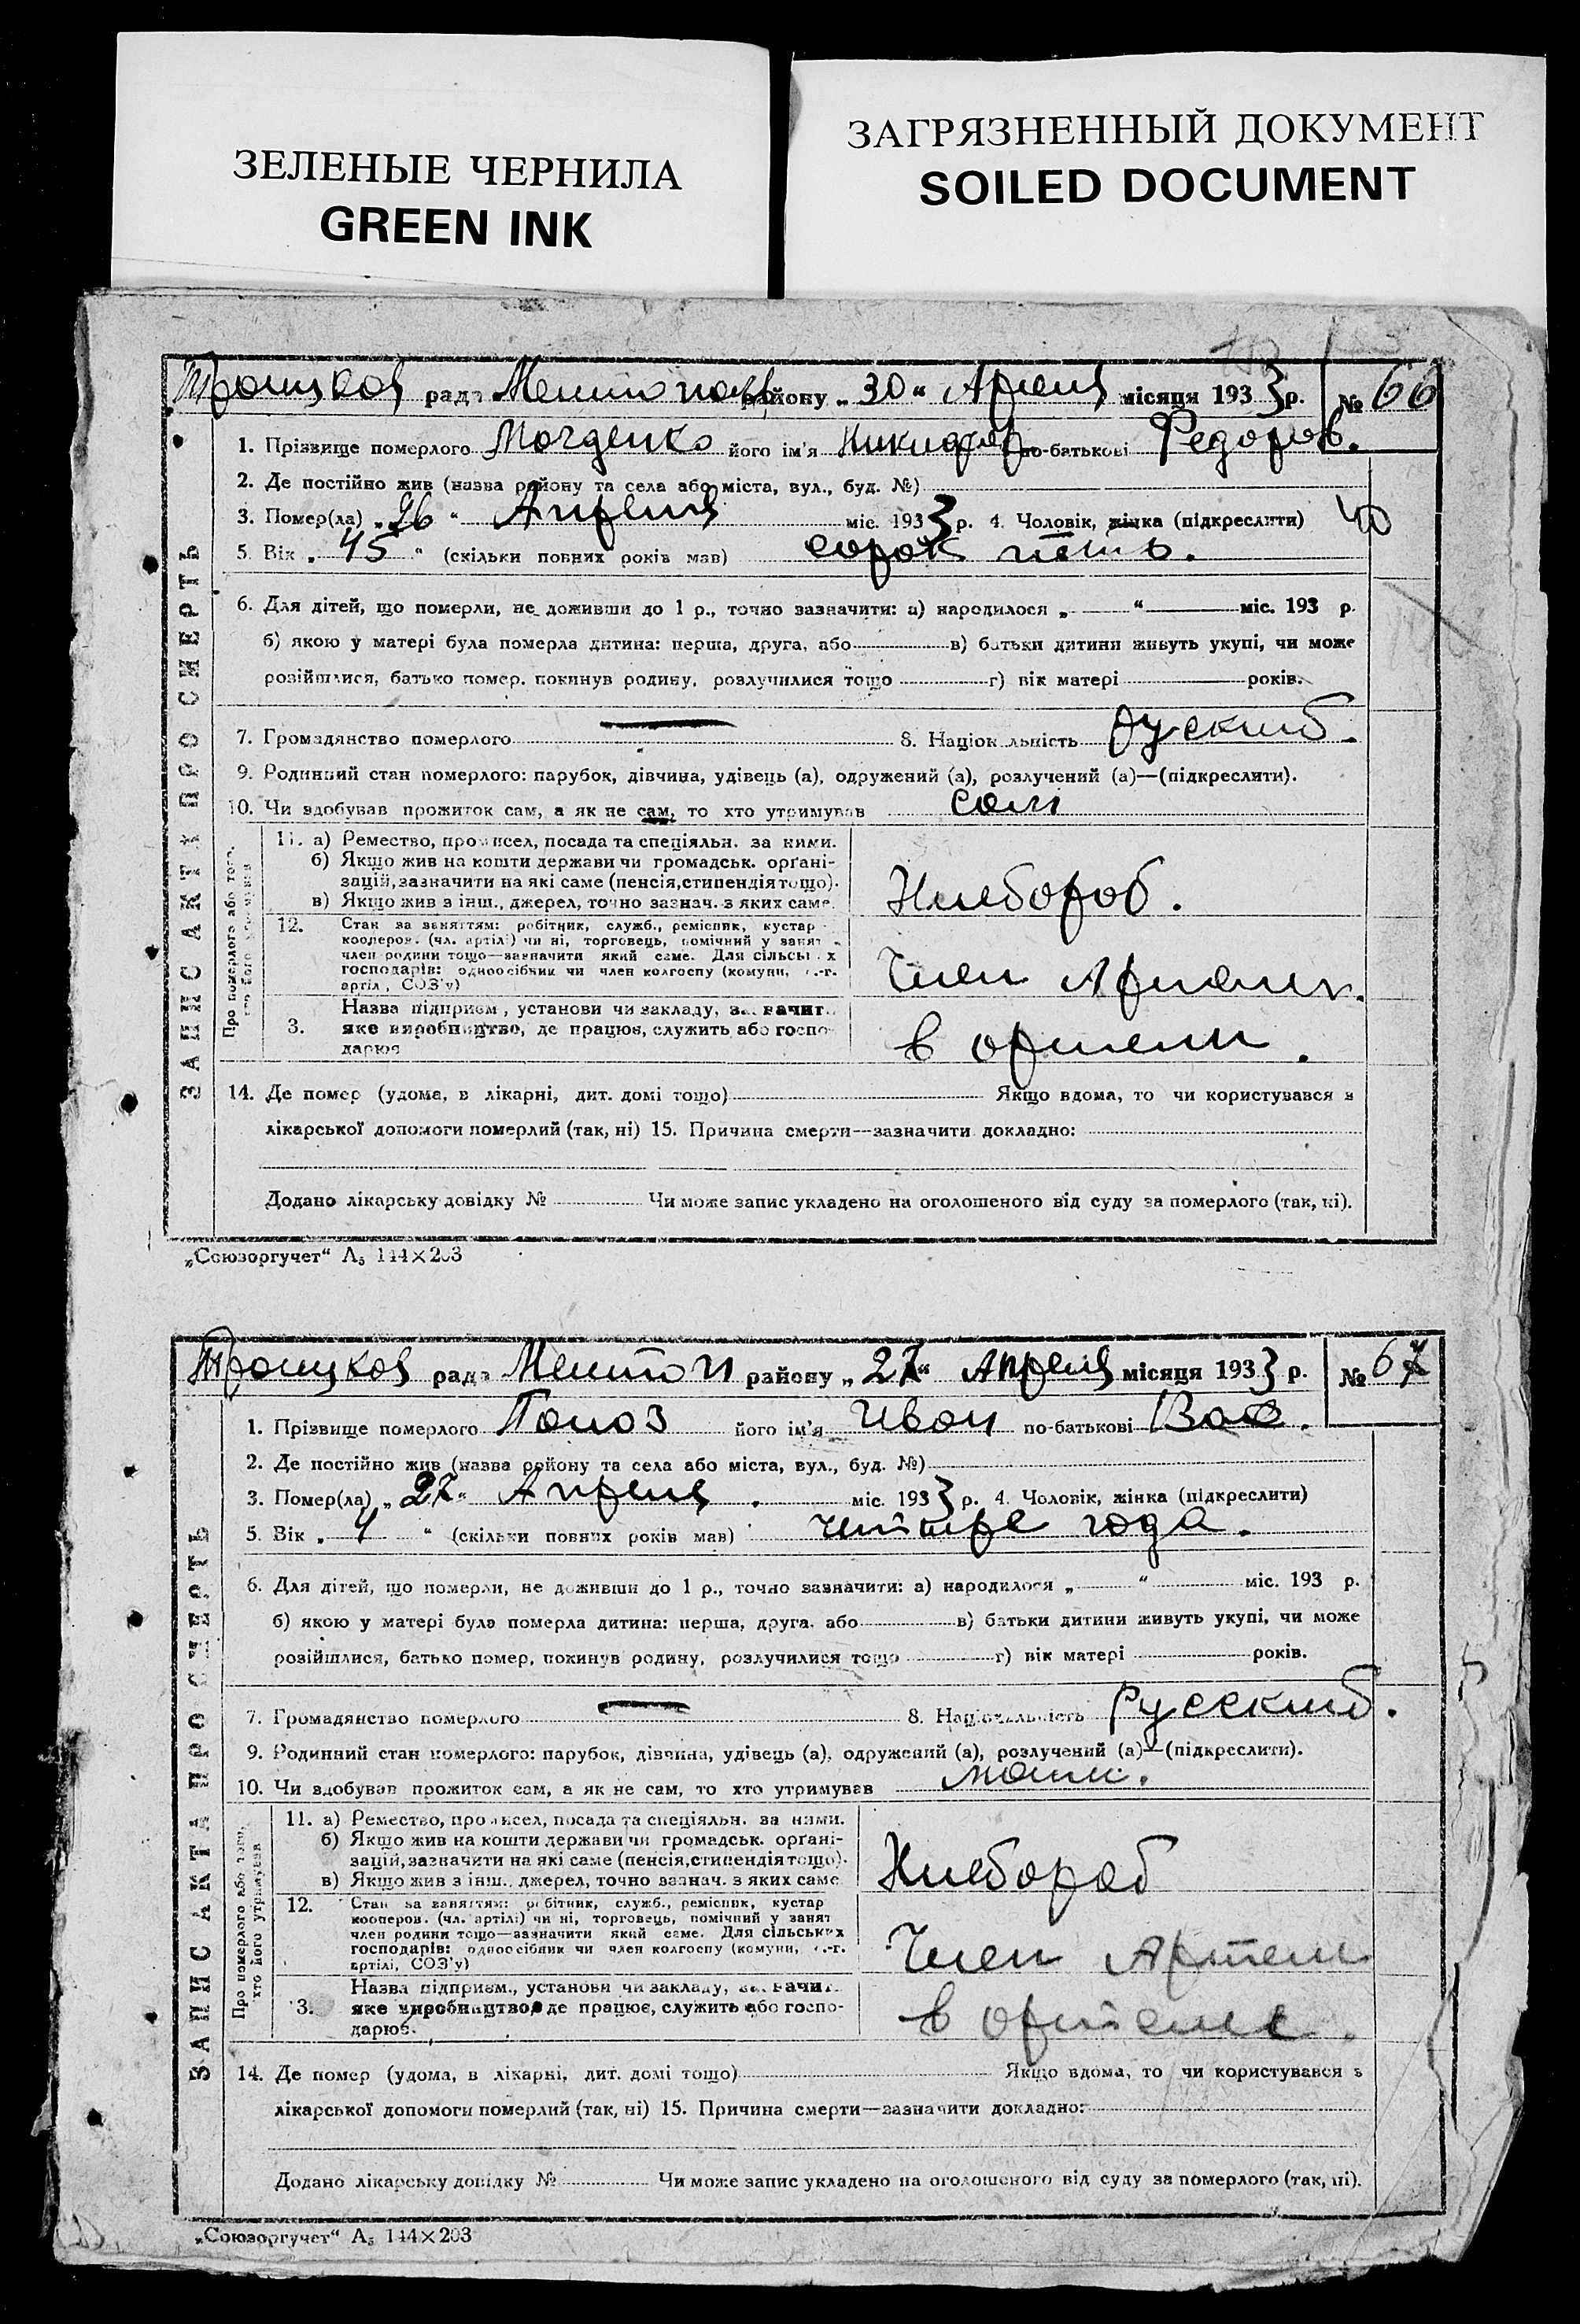 ЗЕЛЕНЫЕ ЧЕРНИЛА
GREEN INK
ЗАГРЯЗНЕННЫЙ ДОКУМЕНТ
SOILED DOCUMENT
Троицков рада Мелитопол району „30“ Апреля місяця 1933 р. № 66
1. Прізвище померлого його ім'я Никифор по-батькові Федоров.
2. Де постійно жив (назва району та села або міста, вул., буд. №)
3. Помер(ла) „26“ Апреля міс. 1933 р. 4. Чоловік, жінка (підкреслити)
5. Вік „45“ (скільки повних років мав) сорок пять.
6. Для дітей, що померли, не доживши до 1 р., точно зазначити: а) народилося „ “ міс. 193 р.
б) якою у матері була померла дитина: перша, друга, або в) батьки дитини живуть укупі, чи може
розійшлися, батько помер, покинув родину, розлучилися тощо г) вік матері років.
7. Громадянство померлого — 8. Національність руский.
9. Родинний стан померлого: парубок, дівчина, удівець (а), одружений (а), розлучений (а)—(підкреслити).
10. Чи здобував прожиток сам, а як не сам, то хто утримував сам
ЗАПИС АКТА ПРО СМЕРТЬ
Про померлого або того, хто його утримував
11. а) Ремество, промисел, посада та спеціяльн. за ними.
б) Якщо жив на кошти держави чи громадськ. орґані-
зацій, зазначити на які саме (пенсія, стипендія тощо).
в) Якщо жив з інш., джерел, точно зазнач. з яких саме.
Хлебороб.
12. Стан за заняттям: робітник, служб., ремісник, кустар
кооперов. (чл. артілі) чи ні, торговець, помічний у занят
член родини тощо—зазначити який саме. Для сільських
господарів: одноосібник чи член колгоспу (комуни, с.-г.
артілі, СОЗ'у)
Член Артели.
13. Назва підприєм., установи чи закладу, зазначит.
яке виробництво, де працює, служить або госпо-
дарює
в артели.
14. Де помер (удома, в лікарні, дит. домі тощо) Якщо вдома, то чи користувався з
лікарської допомоги померлий (так, ні) 15. Причина смерти—зазначити докладно:
Додано лікарську довідку № Чи може запис укладено на оголошеного від суду за померлого (так, ні).
„Союзоргучет“ А₅ 144×203
Троицков рада Мелитоп району „27“ Апреля місяця 1933 р. № 67
1. Прізвище померлого його ім'я Иван по-батькові Вас.
2. Де постійно жив (назва району та села або міста, вул., буд. №)
3. Помер(ла) „27“ Апреля. міс. 1933 р. 4. Чоловік, жінка (підкреслити)
5. Вік „4“ (скільки повних років мав) четыре года.
6. Для дітей, що померли, не доживши до 1 р., точно зазначити: а) народилося „ “ міс. 193 р.
б) якою у матері була померла дитина: перша, друга, або в) батьки дитини живуть укупі, чи може
розійшлися, батько помер, покинув родину, розлучилися тощо г) вік матері років.
7. Громадянство померлого — 8. Національність Русский.
9. Родинний стан померлого: парубок, дівчина, удівець (а), одружений (а), розлучений (а)—(підкреслити).
10. Чи здобував прожиток сам, а як не сам, то хто утримував
ЗАПИС АКТА ПРО СМЕРТЬ
Про померлого або того, хто його утримував
11. а) Ремество, промисел, посада та спеціяльн. за ними.
б) Якщо жив на кошти держави чи громадськ. орґані-
зацій, зазначити на які саме (пенсія, стипендія тощо).
в) Якщо жив з інш., джерел, точно зазнач. з яких саме
Хлебороб
12. Стан за заняттям: робітник, служб., ремісник, кустар
кооперов. (чл. артілі) чи ні, торговець, помічний у занят
член родини тощо—зазначити який саме. Для сільських
господарів: одноосібник чи член колгоспу (комуни, с.-г.
артілі, СОЗ'у)
Член Артели
13. Назва підприєм., установи чи закладу, зазначит.
яке виробництво, де працює, служить або госпо-
дарює.
в артели.
14. Де помер (удома, в лікарні, дит. домі тощо) Якщо вдома, то чи користувався з
лікарської допомоги померлий (так, ні) 15. Причина смерти—зазначити докладно:
Додано лікарську довідку № Чи може запис укладено на оголошеного від суду за померлого (так, ні).
„Союзоргучет“ А₅ 144×203